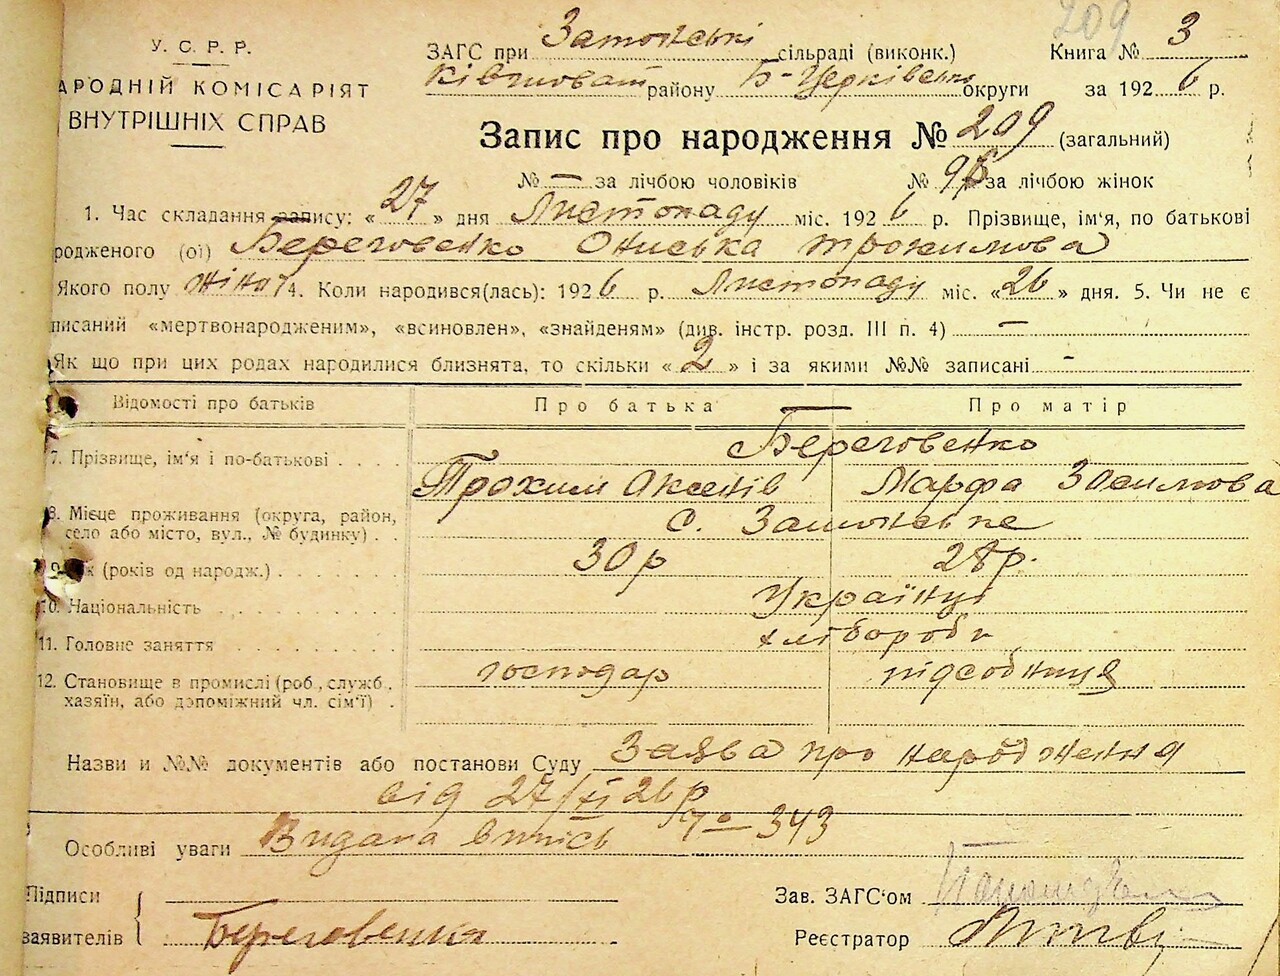 209
У. С. Р. Р.
АРОДНІЙ КОМІСАРІЯТ
ВНУТРІШНІХ СПРАВ
ЗАГС при сільраді (виконк.) Книга № 3
району Б-Церківсько округи за 1926 р.
Запис про народження № 209 (загальний)
№ — за лічбою чоловіків № за лічбою жінок
1. Час складання запису: « 27 » дня Листопаду міс. 1926 р. Прізвище, ім'я, по батькові
родженого (ої) Береговенко Ониська Трохимова
Якого полу жіноч 4. Коли народився(лась): 1926 р. Листопаду міс. «26» дня. 5. Чи не є
писаний «мертвонародженим», «всиновлен», «знайденям» (див. інстр. розд. III п. 4) —
Як що при цих родах народилися близнята, то скільки « 2 » і за якими №№ записані -
Відомості про батьків Про батька Про матір
7. Прізвище, ім'я і по-батькові Береговенко
Трохим Оксенів Марфа Зосимова
8. Місце проживання (округа, район,
село або місто, вул., № будинку) с.
9. к (років од народж.) 30 р 28 р.
10. Національність Українці
11. Головне заняття хлібороби
12. Становище в промислі (роб., служб.,
хазяїн, або допоміжний чл. сім'ї) господар підсобниця
Назви и №№ документів або постанови Суду Заява про народження
від 27/XI 26 р
Особливі уваги Видана випись № 343
Підписи
заявителів Береговенко
Зав. ЗАГС'ом
Реєстратор